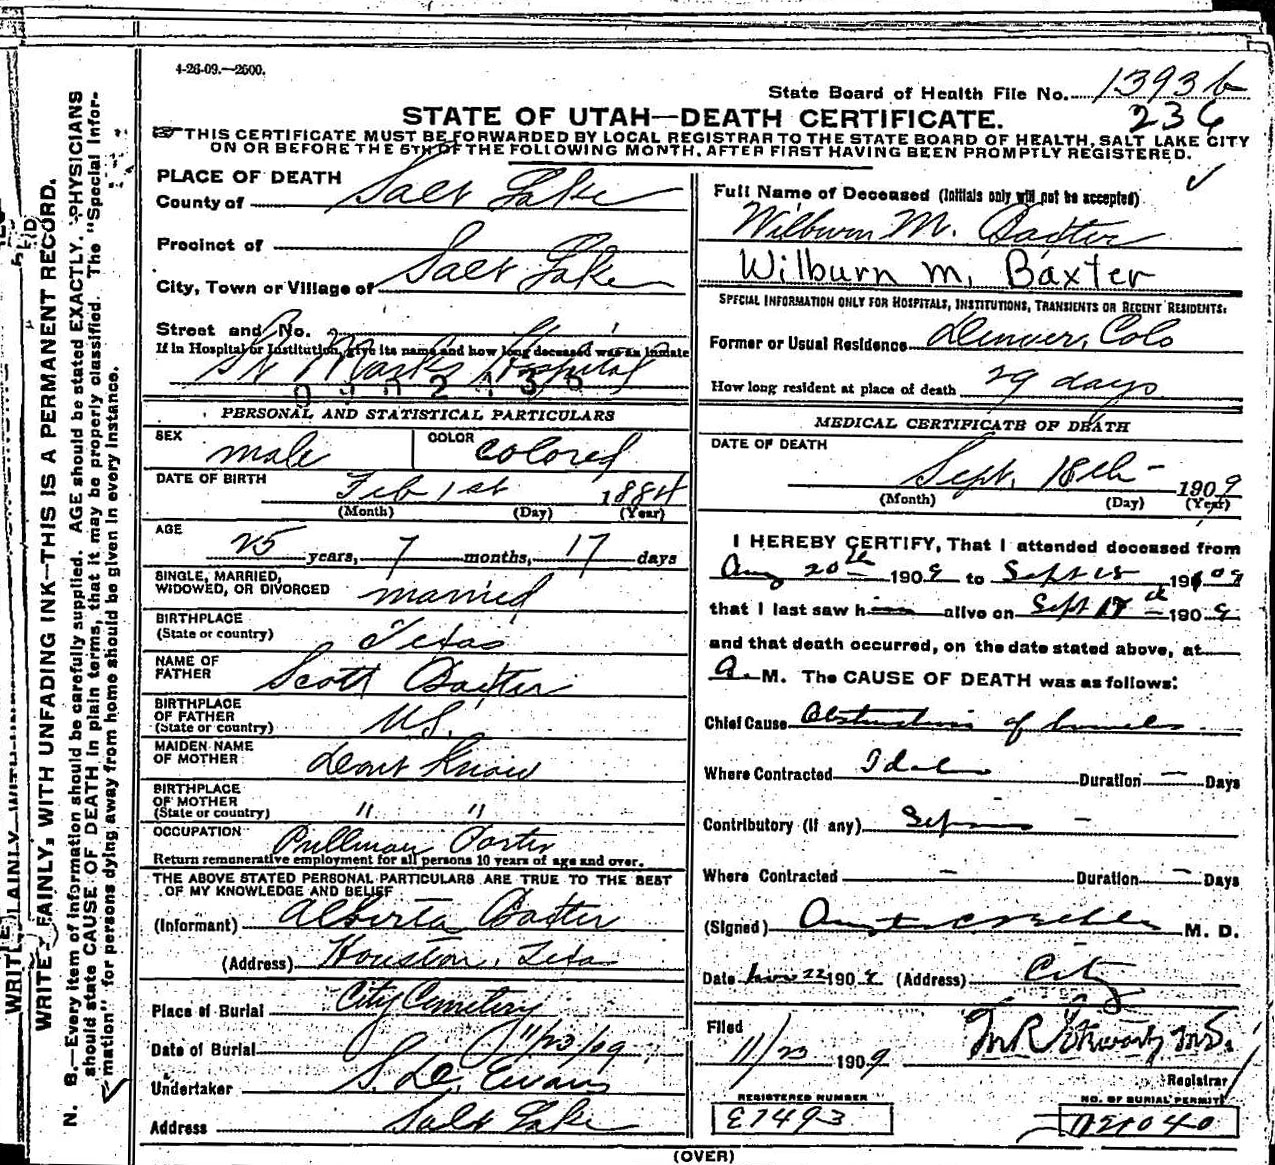 4-26-09.—2500.
State Board of Health File No. 1393 b
236
STATE OF UTAH—DEATH CERTIFICATE.
THIS CERTIFICATE MUST BE FORWARDED BY LOCAL REGISTRAR TO THE STATE BOARD OF HEALTH, SALT LAKE CITY
ON OR BEFORE THE 5TH OF THE FOLLOWING MONTH, AFTER FIRST HAVING BEEN PROMPTLY REGISTERED.
PLACE OF DEATH
County of Salt Lake
Precinct of
City, Town or Village of Salt Lake
Street and No.
If in Hospital or Institution, give its name and how long deceased was an inmate
St Marks Hospital
PERSONAL AND STATISTICAL PARTICULARS
SEX male
COLOR colored
DATE OF BIRTH Feb 1st 1884
(Month) (Day) (Year)
AGE
25 years, 7 months, 17 days
SINGLE, MARRIED,
WIDOWED, OR DIVORCED married
BIRTHPLACE
(State or country) Texas
NAME OF
FATHER Scott Baxter
BIRTHPLACE
OF FATHER
(State or country) U.S.
MAIDEN NAME
OF MOTHER dont Know
BIRTHPLACE
OF MOTHER
(State or country) " "
OCCUPATION Pullman Porter
Return remunerative employment for all persons 10 years of age and over.
THE ABOVE STATED PERSONAL PARTICULARS ARE TRUE TO THE BEST
OF MY KNOWLEDGE AND BELIEF
(Informant) Alberta Baxter
(Address) Houston, Texas
Place of Burial City Cemetery
Date of Burial 11/23/09
Undertaker S. D. Evans
Address Salt Lake
Full Name of Deceased (Initials only will not be accepted)
Wilburn M. Baxter
Wilburn M. Baxter
SPECIAL INFORMATION ONLY FOR HOSPITALS, INSTITUTIONS, TRANSIENTS OR RECENT RESIDENTS:
Former or Usual Residence Denver, Colo
How long resident at place of death 29 days
MEDICAL CERTIFICATE OF DEATH
DATE OF DEATH
Sept. 18th - 1909
(Month) (Day) (Year)
I HEREBY CERTIFY, That I attended deceased from
Aug 20th 1909 to Sept 18 1909
that I last saw him alive on Sept 18 1909
and that death occurred, on the date stated above, at
a. M. The CAUSE OF DEATH was as follows:
Chief Cause Obstruction of bowels
Where Contracted Idaho Duration — Days
Contributory (if any) Sepsis -
Where Contracted - Duration - Days
(Signed) M. D.
Date Nov 22 1909 (Address) City
Filed
11/23 1909
Registrar
REGISTERED NUMBER
E7493
NO. OF BURIAL PERMIT
A21040
(OVER)
WRITE PLAINLY, WITH UNFADING INK—THIS IS A PERMANENT RECORD.
N. B.—Every item of information should be carefully supplied. AGE should be stated EXACTLY. PHYSICIANS
should state CAUSE OF DEATH in plain terms, that it may be properly classified. The "Special Infor-
mation" for persons dying away from home should be given in every instance.